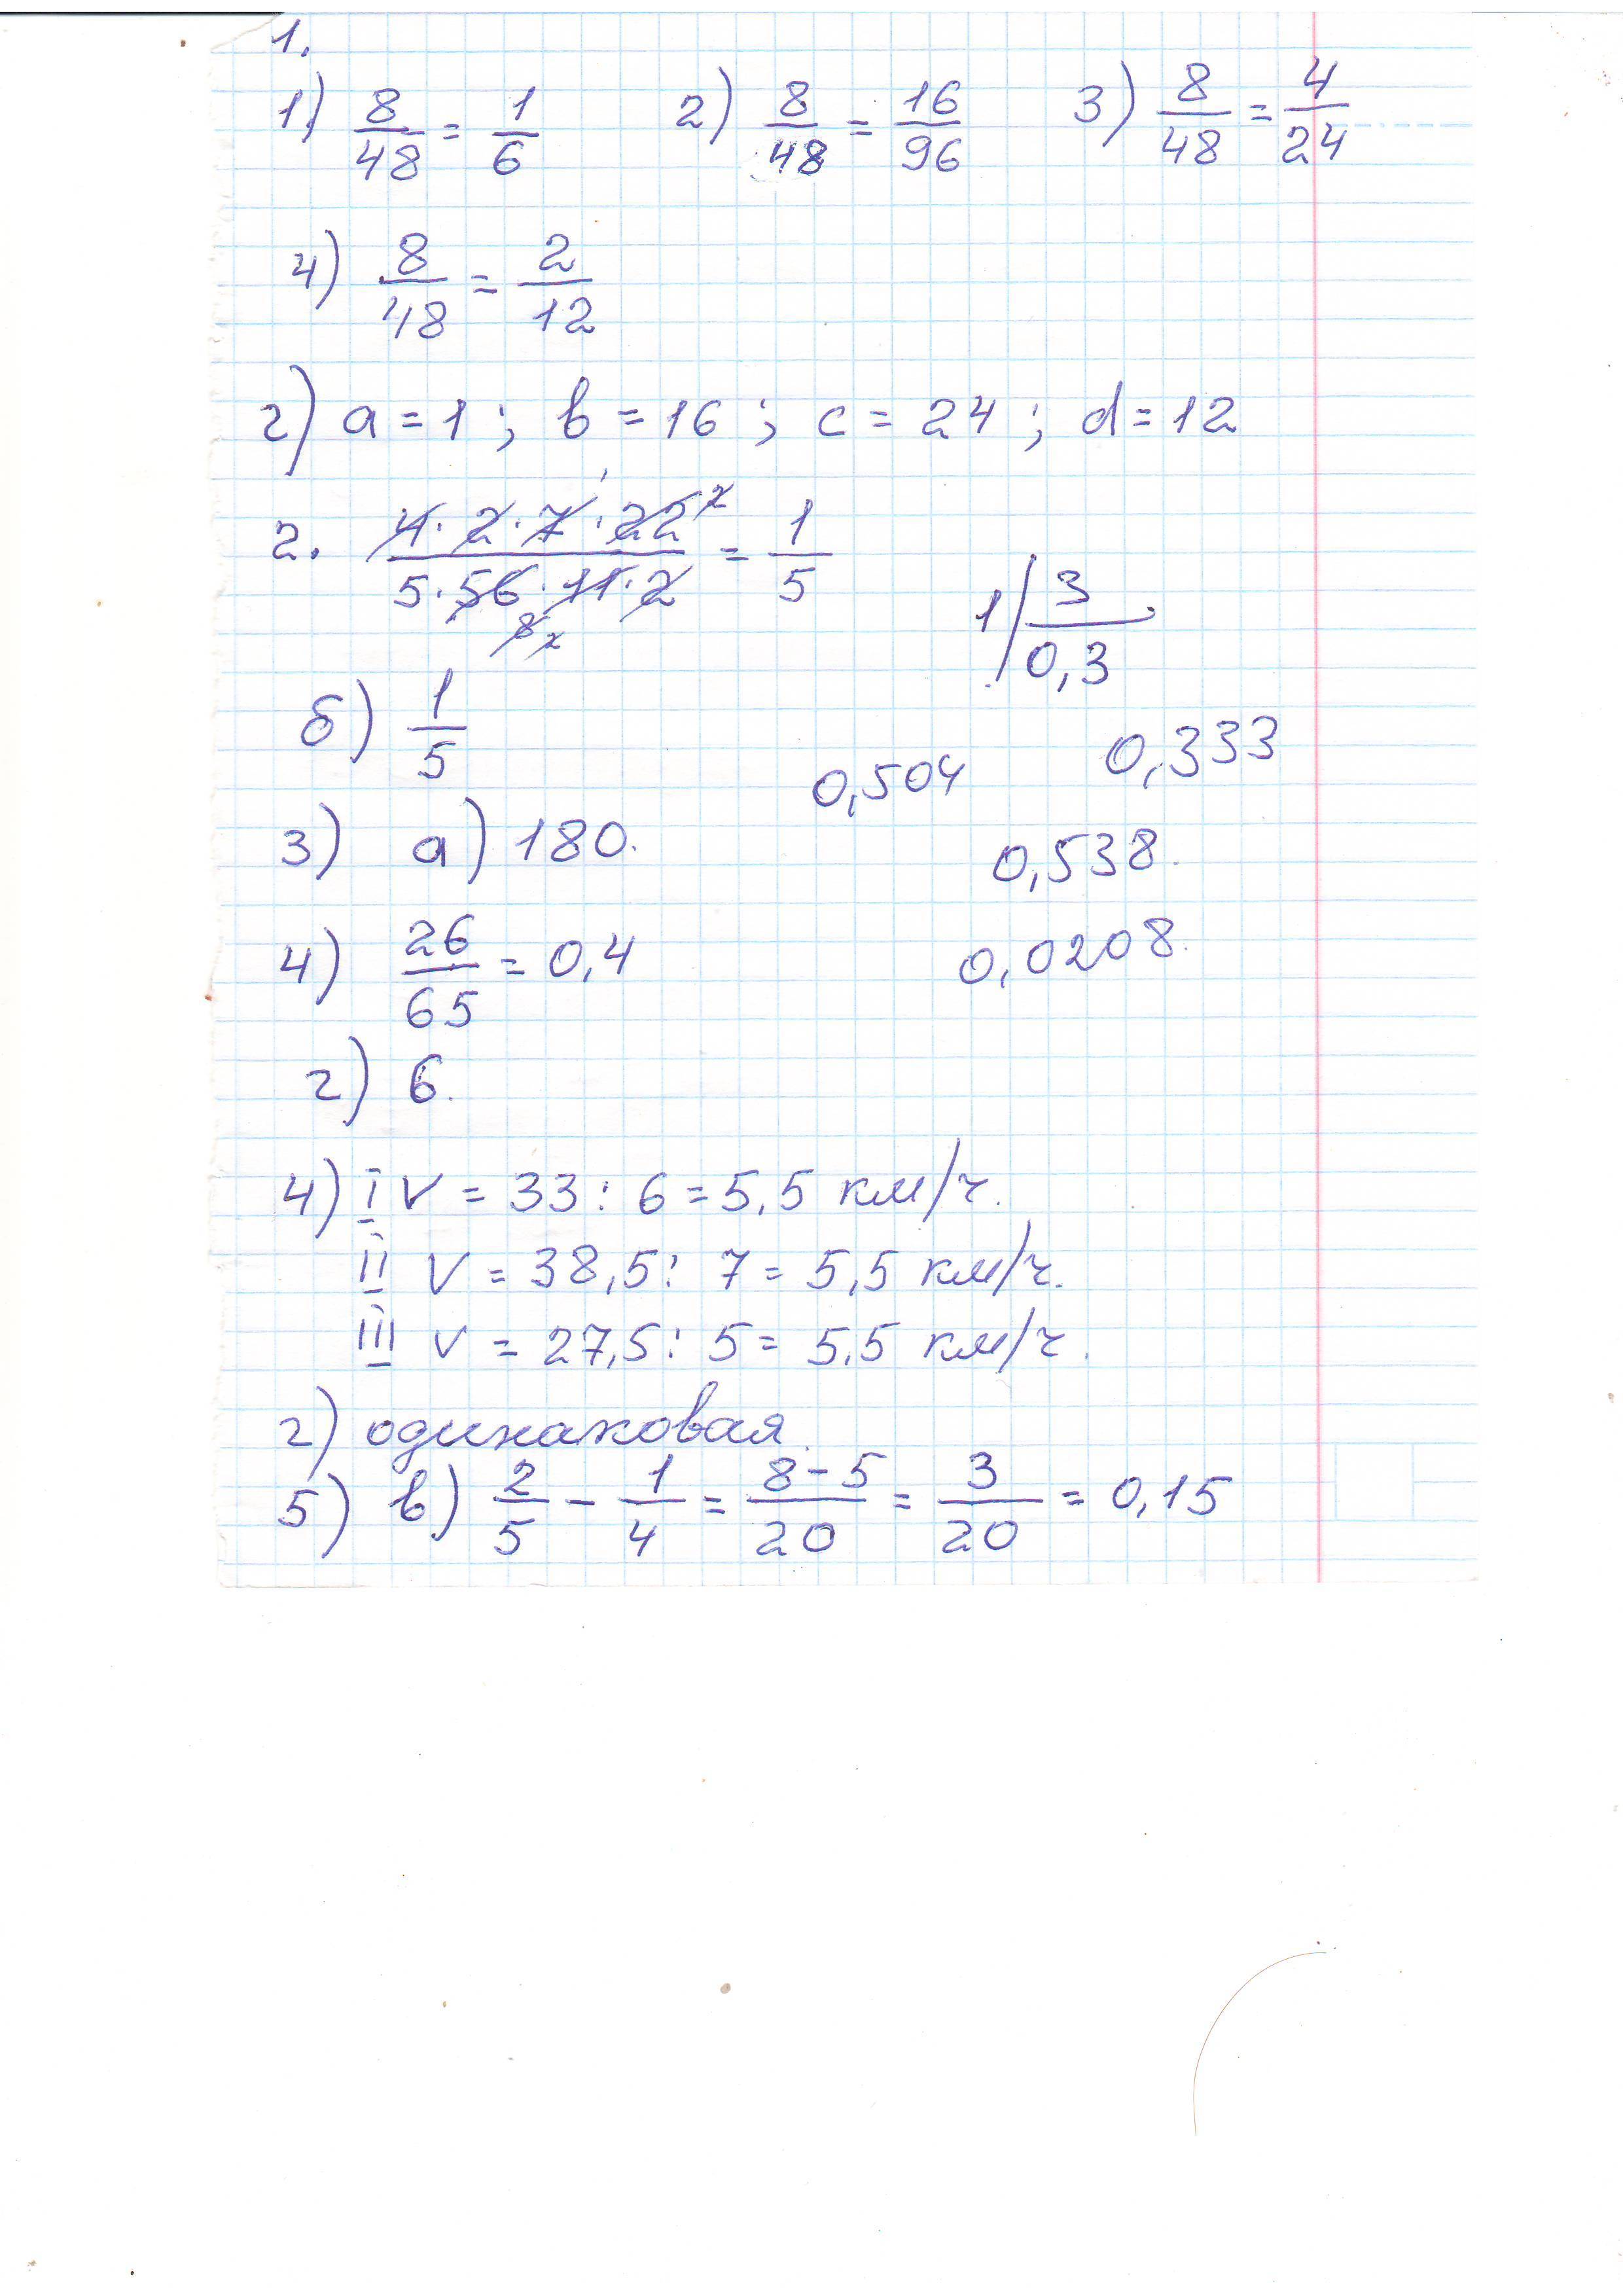 1.
1) 8/48 = 1/6 2) 8/48 = 16/96 3) 8/48 = 4/24
4) 8/48 = 2/12
г) a = 1 ; b = 16 ; c = 24 ; d = 12
2. 4 · 2 · 7 · 22 2 / 5 · 56 · 11 · 2 8 2 = 1/5
1 3
0,3
б) 1/5
0,504 0,333
3) а) 180.
0,538.
4) 26/65 = 0,4
0,0208.
г) 6.
4) I V = 33 : 6 = 5,5 км/ч.
II V = 38,5 : 7 = 5,5 км/ч.
III V = 27,5 : 5 = 5,5 км/ч.
г) одинаковая.
5) в) 2/5 - 1/4 = 8-5/20 = 3/20 = 0,15